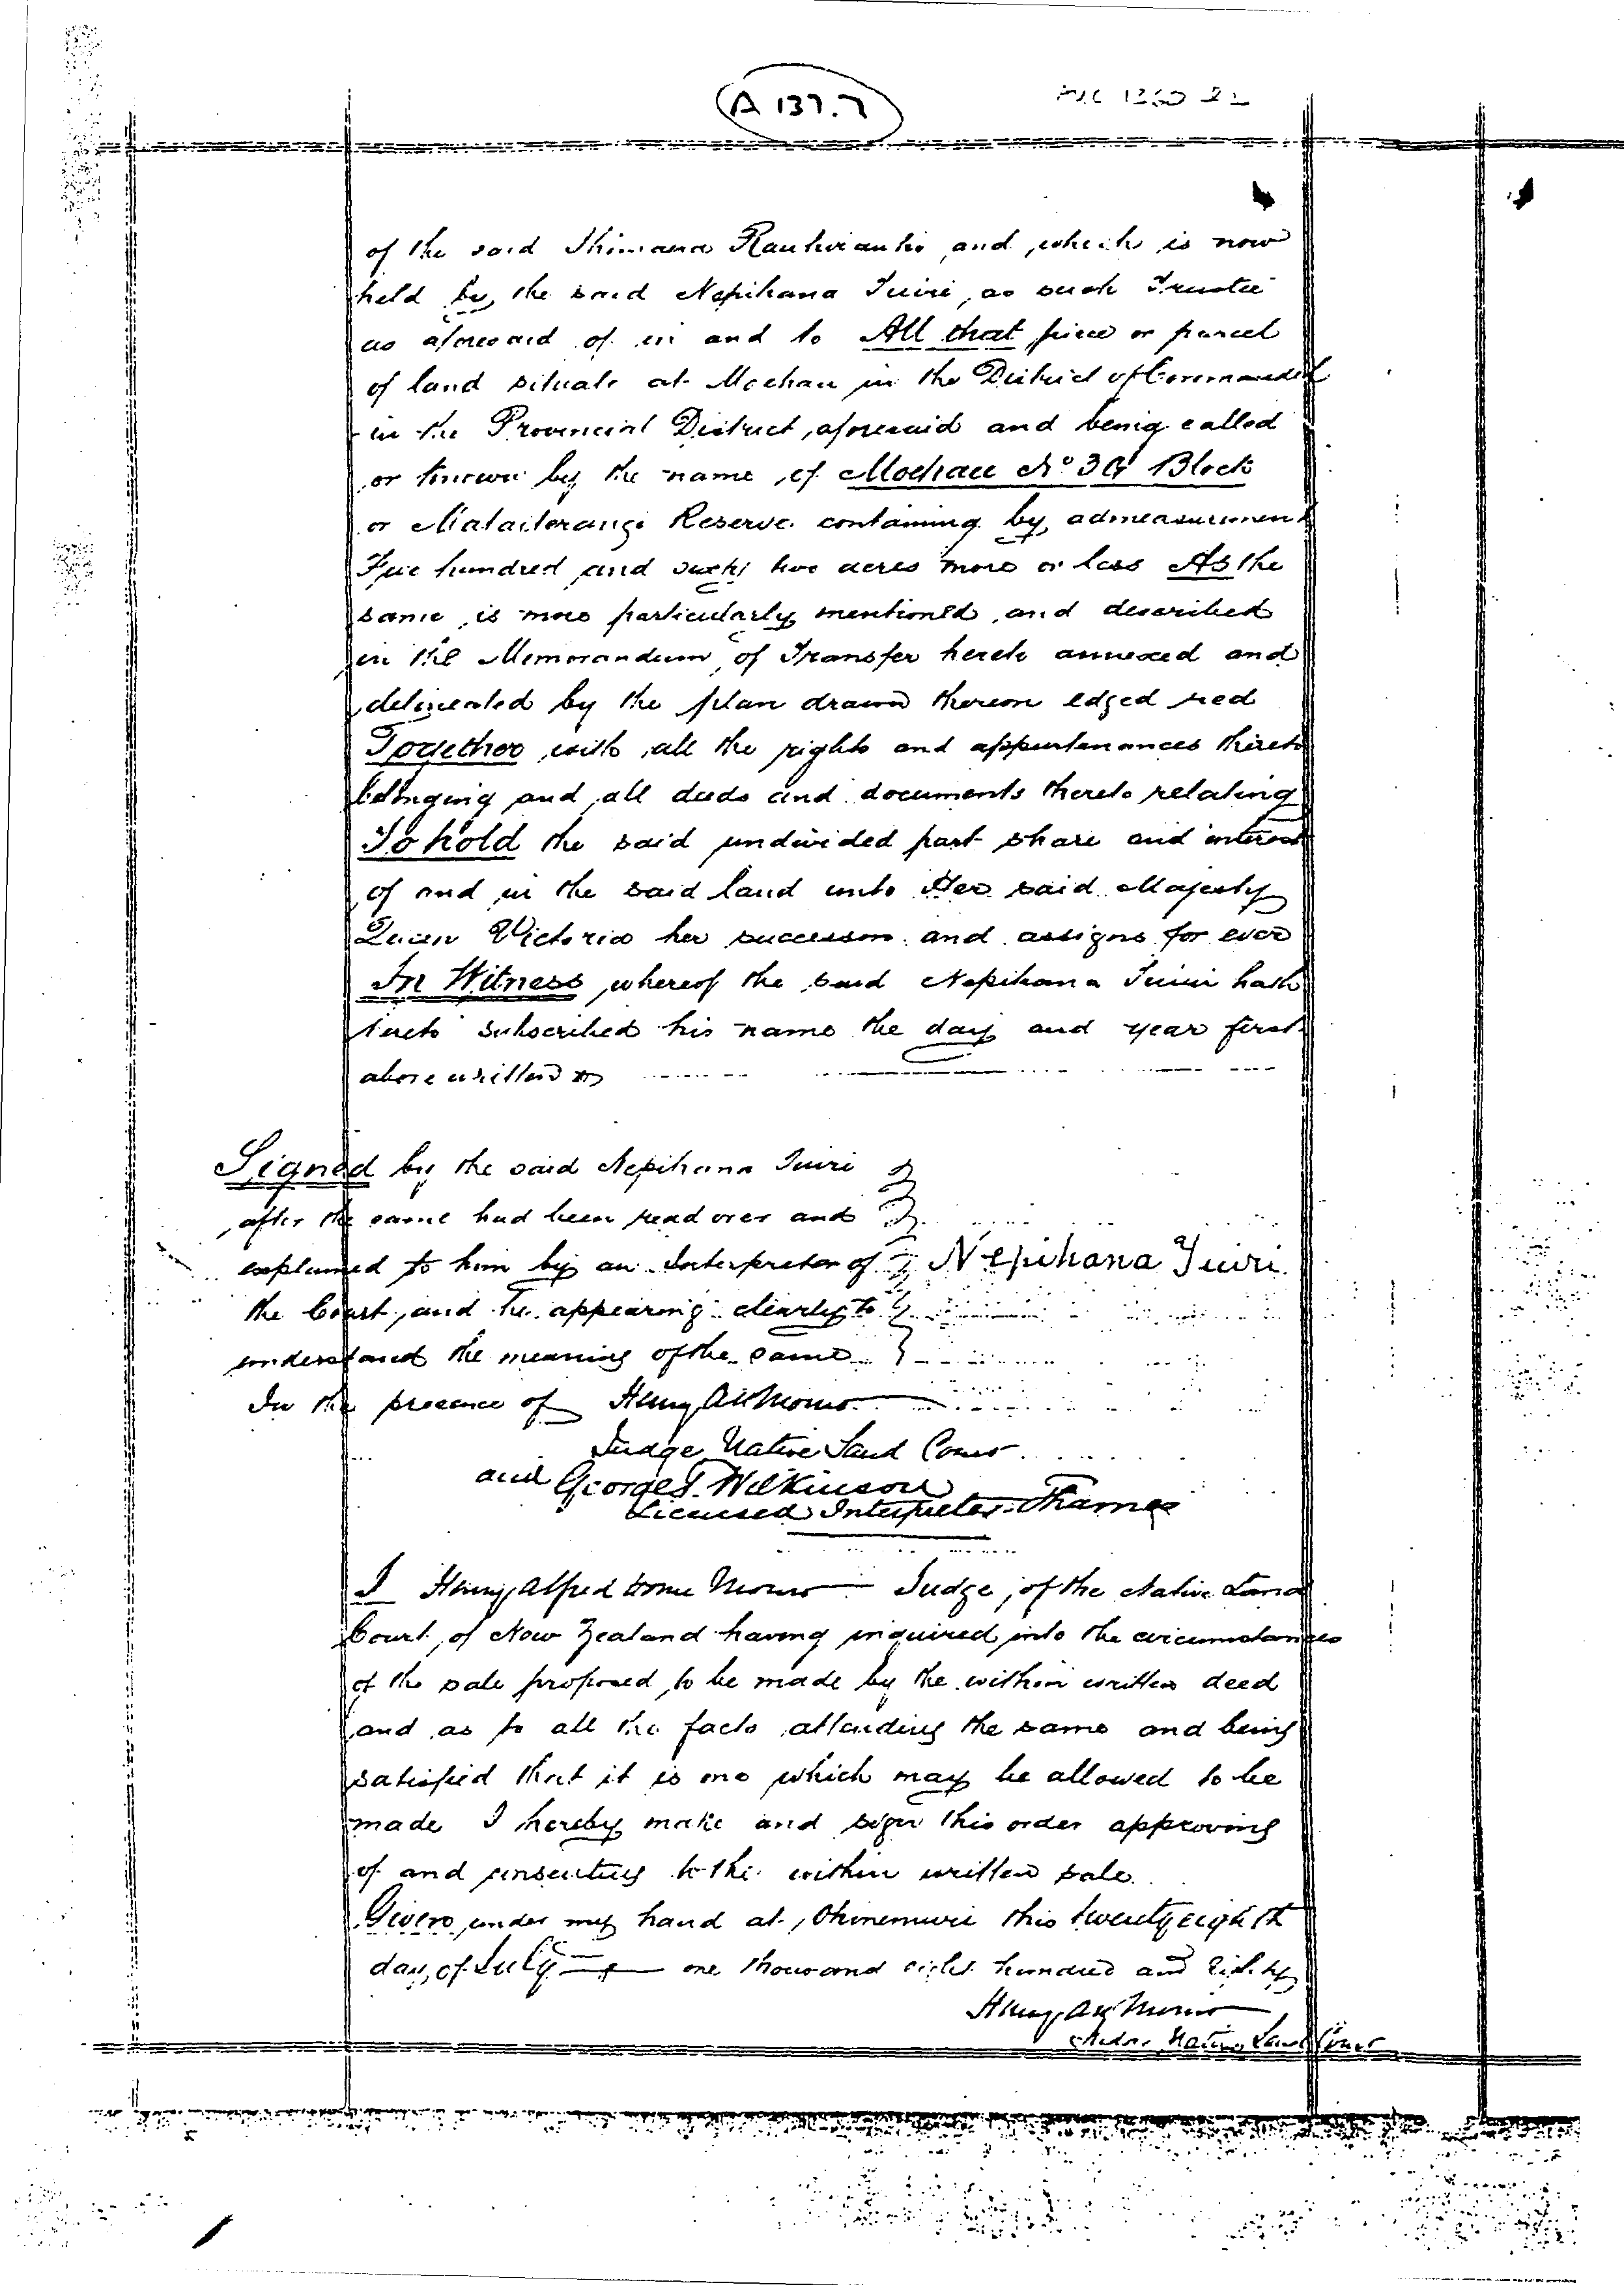 A 137.7
of the said Ihimaera and which is now
held by the said Nepihana Tuiri, as such Trustee
as aforesaid of in and to All that piece or parcel
of land situate at Moehau in the District of Coromandel
in the Provincial District aforesaid and being called
or known by the name of Moehau No 3G Block
or Reserve containing by admeasurement
Five hundred and sixty two acres more or less As the
same is more particularly mentioned and described
in the Memorandum of Transfer hereto annexed and
delineated by the plan drawn thereon edged red
Together with all the rights and appurtenances thereto
belonging and all deeds and documents thereto relating
To hold the said undivided part share and interest
of and in the said land unto Her said Majesty
Queen Victoria her successors and assigns for ever
In Witness whereof the said Nepihana Tuiri hath
hereto subscribed his name the day and year first
above written
Signed by the said Nepihana Tuiri
after the same had been read over and
explained to him by an Interpreter of Nepihana Tuiri
the Court, and he appearing clearly to
understand the meaning of the same
In the presence of Henry AH Monro
Judge Native Land Court
and George T. Wilkinson
Licensed Interpreter Thames
I Henry Alfred Home Monro Judge of the Native Land
Court of New Zealand having inquired into the circumstances
of the sale proposed to be made by the within written deed
and as to all the facts attending the same and being
satisfied that it is one which may be allowed to be
made I hereby make and sign this order approving
of and consenting to the within written sale.
Given under my hand at Ohinemuri this twenty eighth
day of July one thousand eight hundred and eighty
Henry AH Monro
Judge Native Land Court